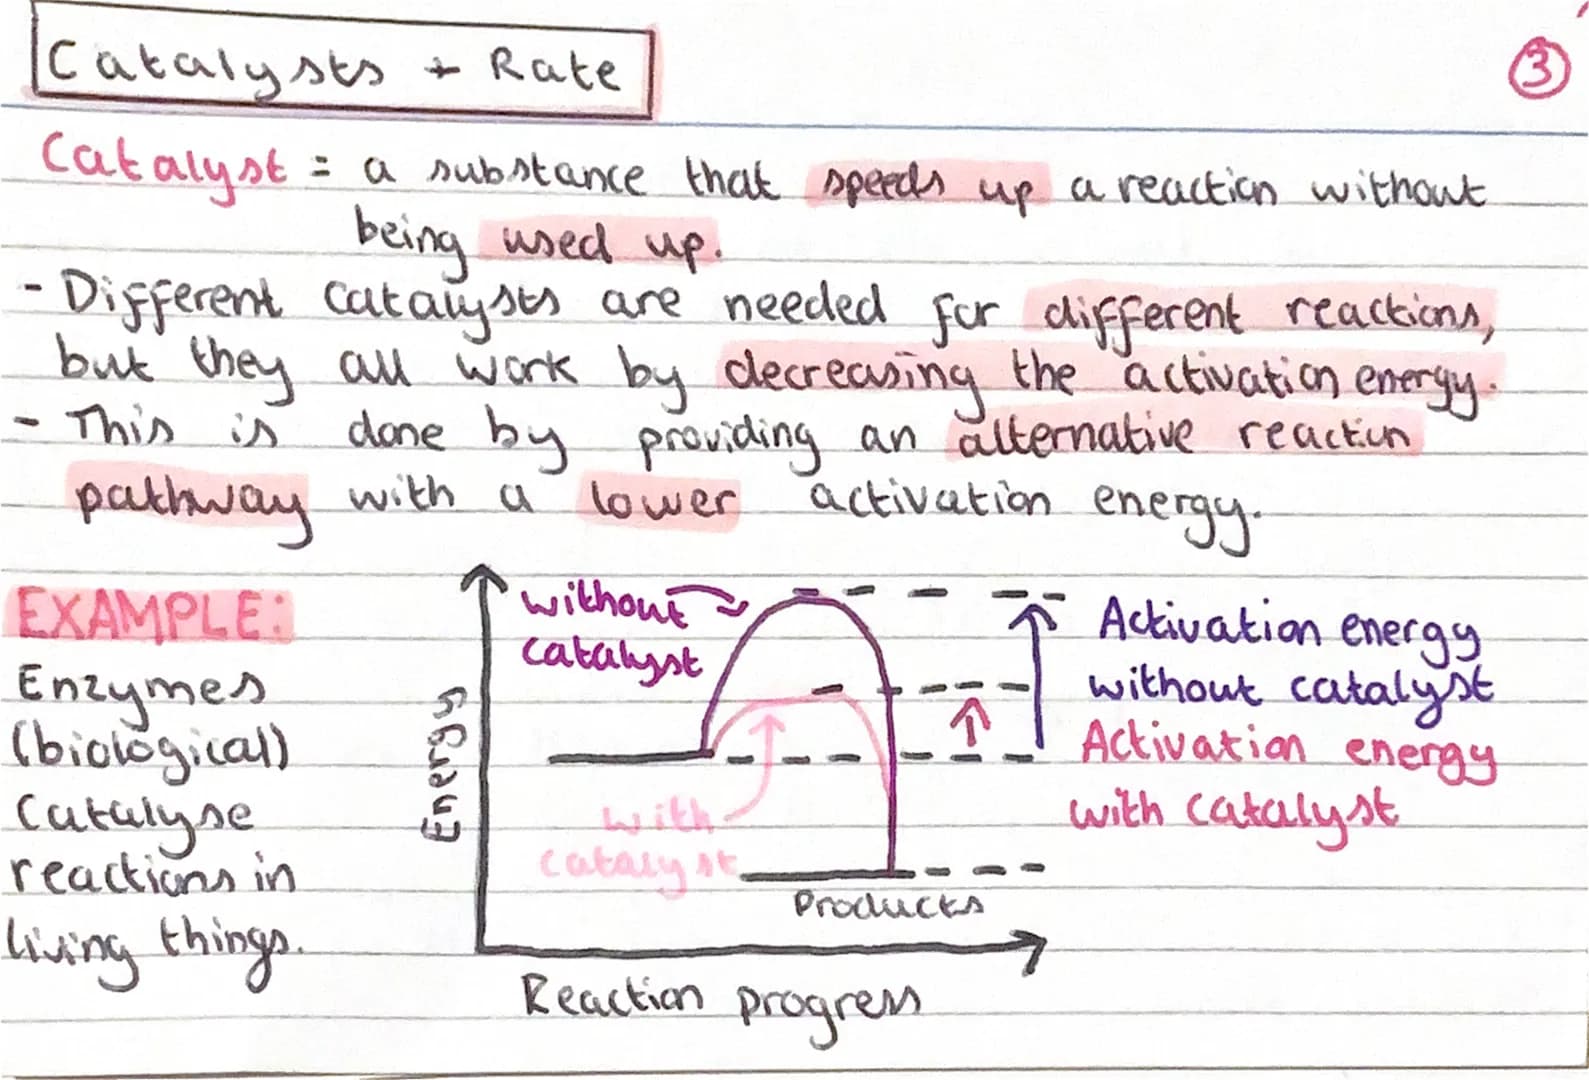 Catalysts + Rate
3
Catalyst = a substance that speeds up a reaction without
being used up.
- Different catalysts are needed for different reactions,
but they all work by decreasing the activation energy.
- This is done by providing an alternative reaction
pathway with a lower activation energy.
EXAMPLE:
Enzymes
(biological)
catalyse
reactions in
living things.
without
catalyst
Energy
with
catalyst
Products
Reaction progress
Activation energy
without catalyst
Activation energy
with catalyst